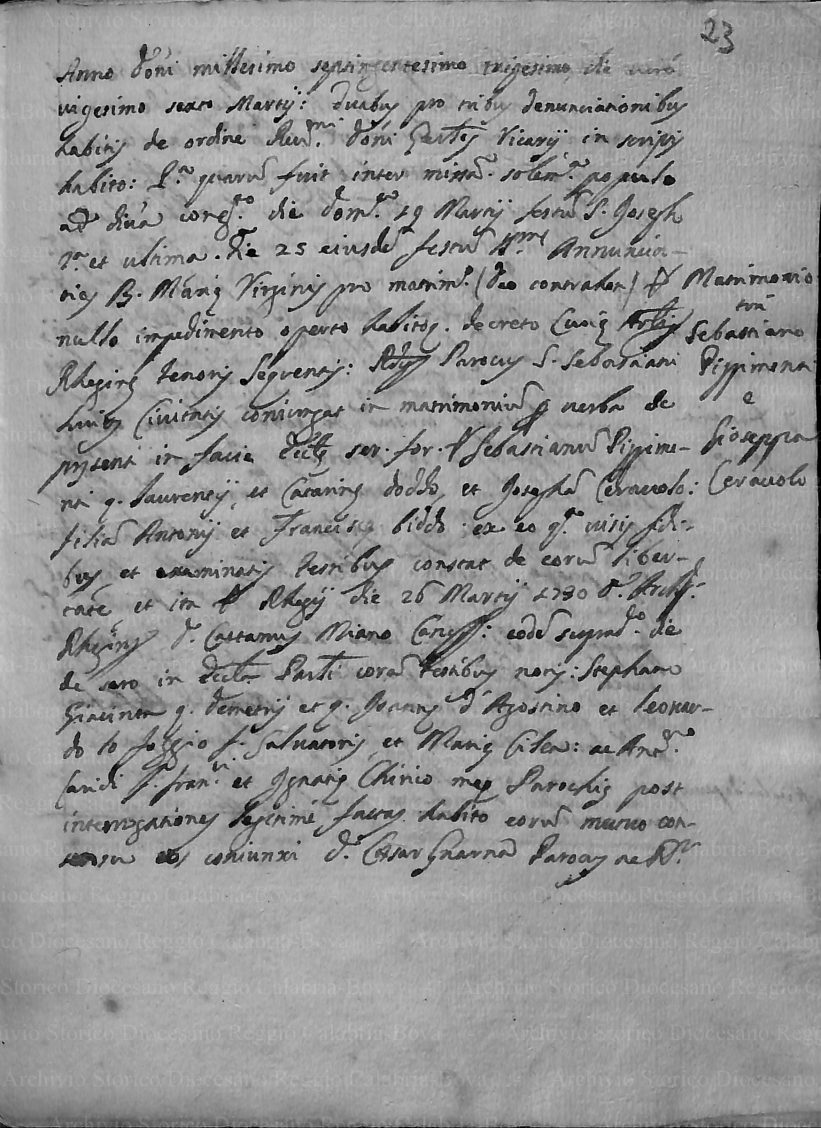 23
Anno Dni millesimo septingentesimo trigesimo, die vero
vigesimo sexto Martij: duabus pro tribus denunciationibus
habitis de ordine Rev.mi Dni Vicarij in scriptis
habito: P.a quarũ fuit inter missã solem. populo
ad divã congr.to die Dom.co 19 Martij festũ S. Joseph
2.a et ultima. Die 25 eiusdẽ festũ Annuncia-
tiõis B. Mariæ Virginis pro matrim.o (sic contrahen)
nullo impedimento operto habitoq. decreto Curiæ
Rheginæ tenoris sequentis: Parocus S. Sebastiani
huius Civitatis coniungat in matrimoniũ p verba de
pñsenti in facie Eccl.æ ser. for. Sebastianũ Pippime-
nti q. Laurentij, et Catarinæ et Josephã Ceravolo:
filiã Antonij et Franciscæ ex eo q.a visis fidi-
bus, et examinatis testibus constat de eorũ liber-
tate et ita Rhegij die 26 Martij 1730
Rheginus D. Cattanus Miano Canc.s: eodẽ suprad.to die
de sero in Eccl.a corã testibus notis: Stephano
Giacinto q. Demetrij et q. Joannis d'Agostino et Leonar-
do lo Foggio f. Salvatoris et Mariæ Cilea: ac Ant.o
Caridi f. Fran.ci et Ignatiæ Chirico meæ Parochiæ post
interrogationes legitimè factas, habito eorũ mutuo con-
sensu eos coniunxi D. Cesar Gnarna Parocus
Matrimonio
trà
Sebastiano
Pippimenti
e
Gioseppa
Ceravolo